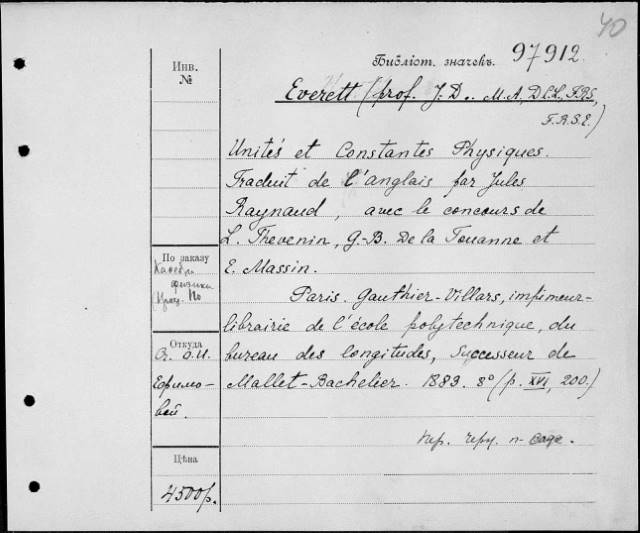 40
Инв.
№
Библіот. значекъ. 97912
Everett (prof. J. D.. M.A, D.C.L. F.R.S,
F.R.S.E.)
Unités et Constantes Physiques.
Traduit de l'anglais par Jules
Raynaud, avec le concours de
L. Thevenin, G.-B. De la Touanne et
E. Massin.
Paris. Gauthier-Villars, imprimeur-
librairie de l'école polytechnique, du
bureau des longitudes, Successeur de
Mallet-Bachelier. 1883. 8° (p. XVI, 200.)
По заказу
физики
Откуда
О. И.
Ефимо-
вой.
Цѣна
4500р.